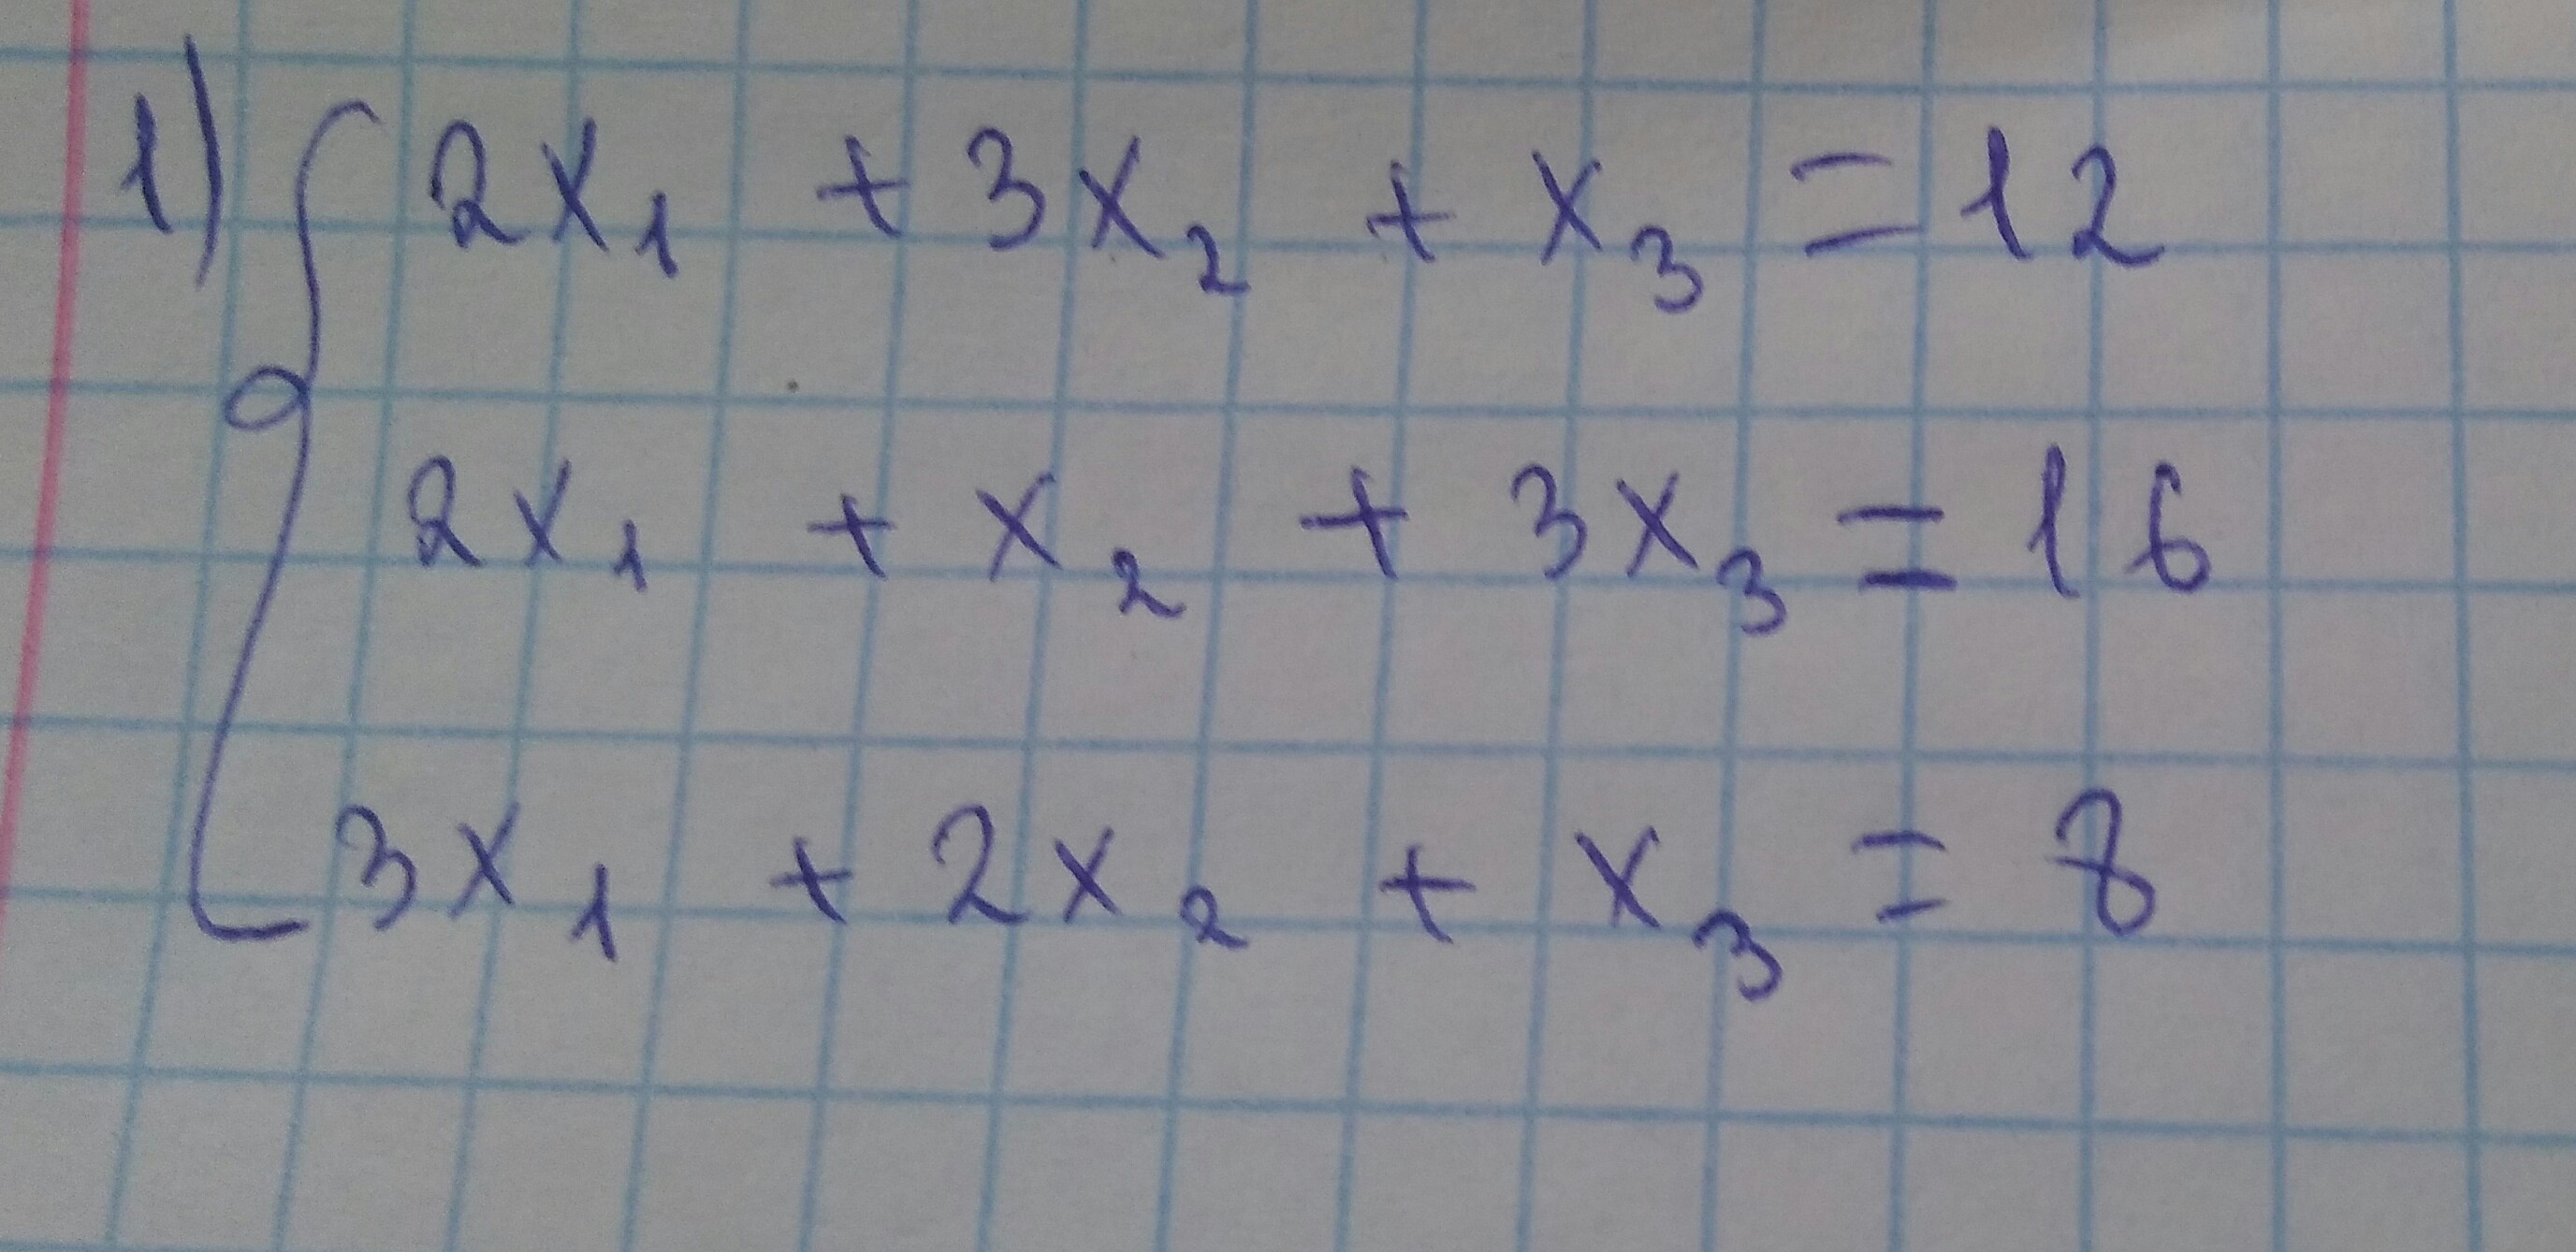 1) { 2x₁ + 3x₂ + x₃ = 12
2x₁ + x₂ + 3x₃ = 16
3x₁ + 2x₂ + x₃ = 8